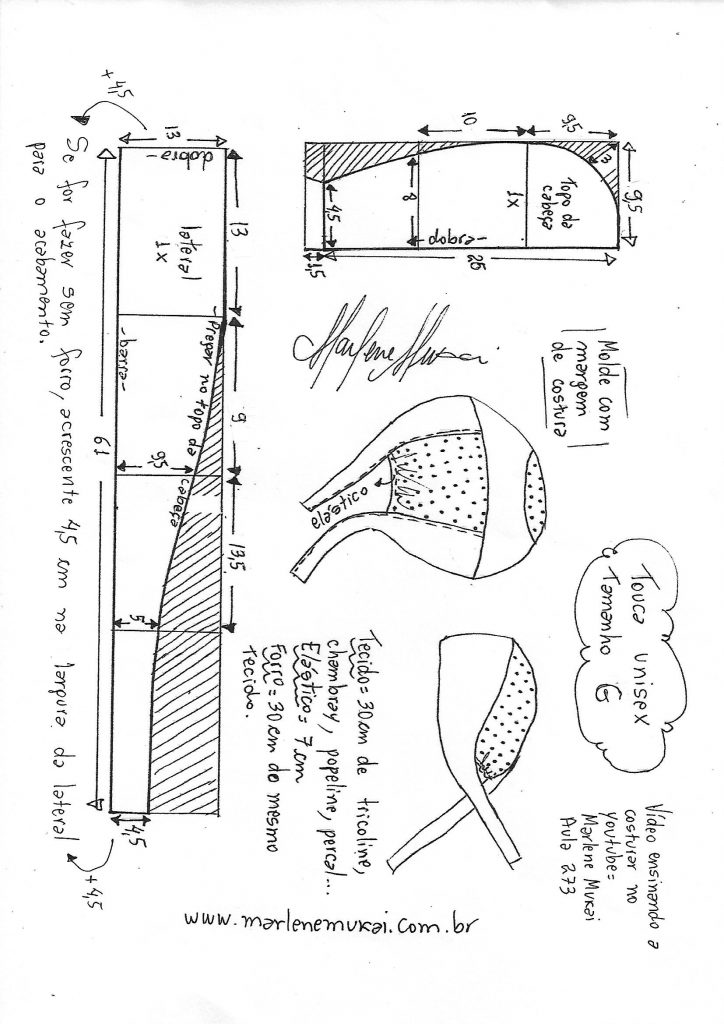 Touca unisex
Tamanho G
Vídeo ensinando a
costurar no
youtube=
Marlene Mukai
Aula 273
Molde com
margem
de costura
9,5
9,5
3
Topo da
cabeça
1x
10
8
-dobra-
25
4,5
1,5
Marlene Mukai
elástico
Tecido= 30 cm de tricoline,
chambray, popeline, percal...
Elástico= 7 cm
Forro= 30 cm do mesmo
tecido.
+4,5
13
dobra-
13
lateral
1x
-Pregar no topo da cabeça
-barra-
9
9,5
13,5
5
61
4,5
+4,5
Se for fazer sem forro, acrescente 4,5 cm na largura da lateral
para o acabamento.
www.marlenemukai.com.br